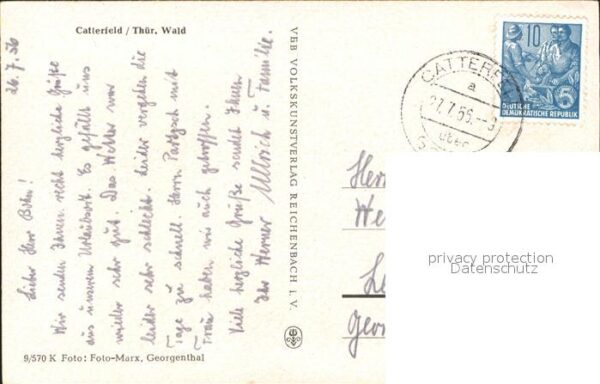 Catterfeld / Thür. Wald
26.7.56
Lieber Herr Böhm!
Wir senden Ihnen recht herzliche Grüße
aus unserem Urlaubsort. Es gefällt uns
wieder sehr gut. Das Wetter war
leider sehr schlecht. Leider vergehen die
Tage zu schnell. Herrn mit
Frau haben wir auch getroffen.
Viele herzliche Grüße sendet Ihnen
Ihr Werner Ullrich u. Familie.
9/570 K Foto: Foto-Marx, Georgenthal
VEB VOLKSKUNSTVERLAG REICHENBACH I. V.
10
5
DEUTSCHE
DEMOKRATISCHE REPUBLIK
CATTERFE
a
27.7.56.-9
über
Herr
We
Le
Geor
privacy protection
Datenschutz